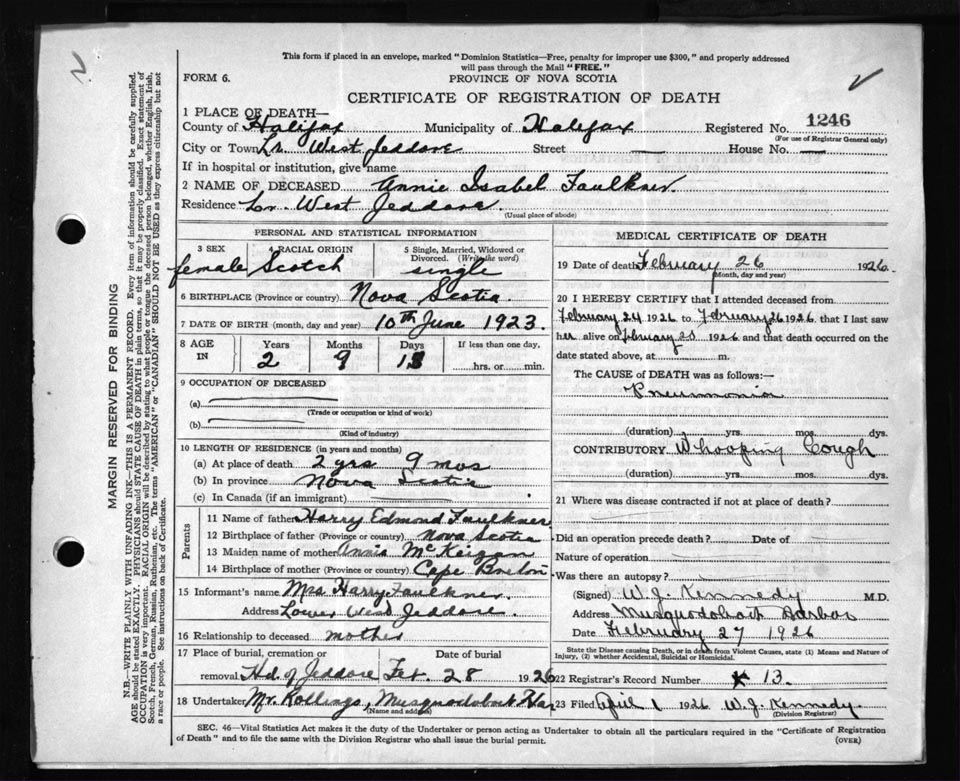 This form if placed in an envelope, marked "Dominion Statistics—Free, penalty for improper use $300," and properly addressed
will pass through the Mail "FREE."
FORM 6.
PROVINCE OF NOVA SCOTIA
CERTIFICATE OF REGISTRATION OF DEATH
1 PLACE OF DEATH—
County of Halifax Municipality of Halifax Registered No. 1246
(For use of Registrar General only)
City or Town Lr. West Jeddore Street — House No. —
If in hospital or institution, give name
2 NAME OF DECEASED Annie Isabel Faulkner.
Residence Lr. West Jeddore.
(Usual place of abode)
PERSONAL AND STATISTICAL INFORMATION
3 SEX 4 RACIAL ORIGIN 5 Single, Married, Widowed or Divorced. (Write the word)
female Scotch single
6 BIRTHPLACE (Province or country) Nova Scotia.
7 DATE OF BIRTH (month, day and year) 10th June 1923.
8 AGE IN Years Months Days If less than one day,
2 9 13 hrs. or min.
9 OCCUPATION OF DECEASED
(a)
(Trade or occupation or kind of work)
(b)
(Kind of industry)
10 LENGTH OF RESIDENCE (in years and months)
(a) At place of death 2 yrs 9 mos
(b) In province Nova Scotia
(c) In Canada (if an immigrant)
Parents
11 Name of father Harry Edmond Faulkner
12 Birthplace of father (Province or country) Nova Scotia
13 Maiden name of mother Annie McKeigan
14 Birthplace of mother (Province or country) Cape Breton
15 Informant's name Mrs Harry Faulkner.
Address Lower West Jeddore.
16 Relationship to deceased mother
17 Place of burial, cremation or removal Date of burial
Hd. of Jeddore Feb. 28 1926
18 Undertaker Mr. Rollings, Musquodoboit Har
(Name and address)
MEDICAL CERTIFICATE OF DEATH
19 Date of death February 26 1926
(Month, day and year)
20 I HEREBY CERTIFY that I attended deceased from
February 24 1926 to February 26 1926, that I last saw
her alive on February 25 1926 and that death occurred on the
date stated above, at m.
The CAUSE OF DEATH was as follows:—
Pneumonia
(duration) yrs. mos. dys.
CONTRIBUTORY Whooping Cough
(duration) yrs. mos. dys.
21 Where was disease contracted if not at place of death?
Did an operation precede death? Date of
Nature of operation
Was there an autopsy?
(Signed) W. J. Kennedy M.D.
Address Musquodoboit Harbor
Date February 27 1926
State the Disease causing Death, or in death from Violent Causes, state (1) Means and Nature of
Injury, (2) whether Accidental, Suicidal or Homicidal.
22 Registrar's Record Number 13.
23 Filed April 1 1926 W. J. Kennedy.
(Division Registrar)
SEC. 46—Vital Statistics Act makes it the duty of the Undertaker or person acting as Undertaker to obtain all the particulars required in the "Certificate of Registration
of Death" and to file the same with the Division Registrar who shall issue the burial permit.
(OVER)
MARGIN RESERVED FOR BINDING
N.B.—WRITE PLAINLY WITH UNFADING INK—THIS IS A PERMANENT RECORD. Every item of information should be carefully supplied.
AGE should be stated EXACTLY. PHYSICIANS should STATE CAUSE OF DEATH in plain terms, so that it may be properly classified. Exact statement of
OCCUPATION is very important. RACIAL ORIGIN will be described by stating to what people or tongue the deceased person belonged, whether English, Irish,
Scotch, French, German, Russian, Ruthenian, etc. The terms "AMERICAN" or "CANADIAN" SHOULD NOT BE USED as they express citizenship but not
a race or people. See instructions on back of Certificate.